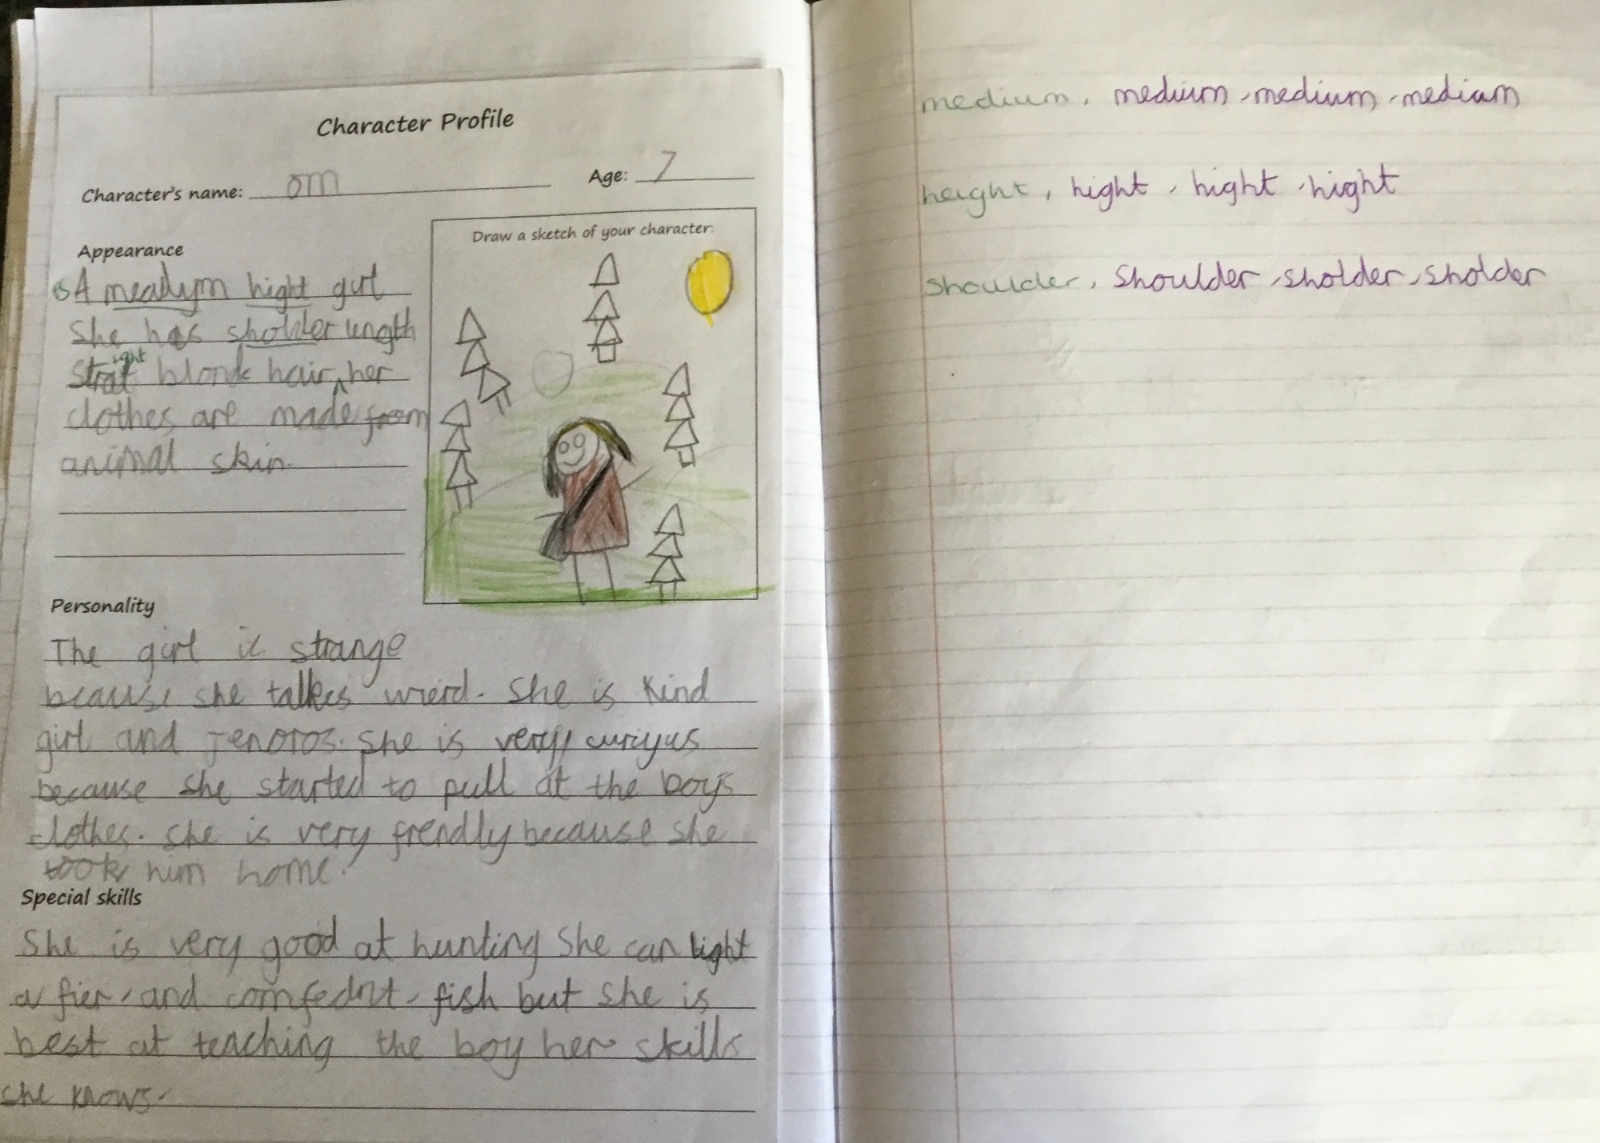 Character Profile
Character's name: om
Age: 7
Appearance
Draw a sketch of your character.
S A meadym hight girl
She has sholder length
strat ight blonde hair, her
clothes are made from
animal skin.
Personality
The girl is strange
beause she talkes wierd. She is kind
girl and jenoros. She is very curiyus
because she started to pull at the boys
clothes. She is very frendly because she
took him home.
Special skills
She is very good at hunting She can light
a fier, and comfednt, fish but she is
best at teaching the boy her skills
she knows.
medium, medium, medium, medium
height, hight, hight, hight
shoulder, Shoulder, sholder, sholder